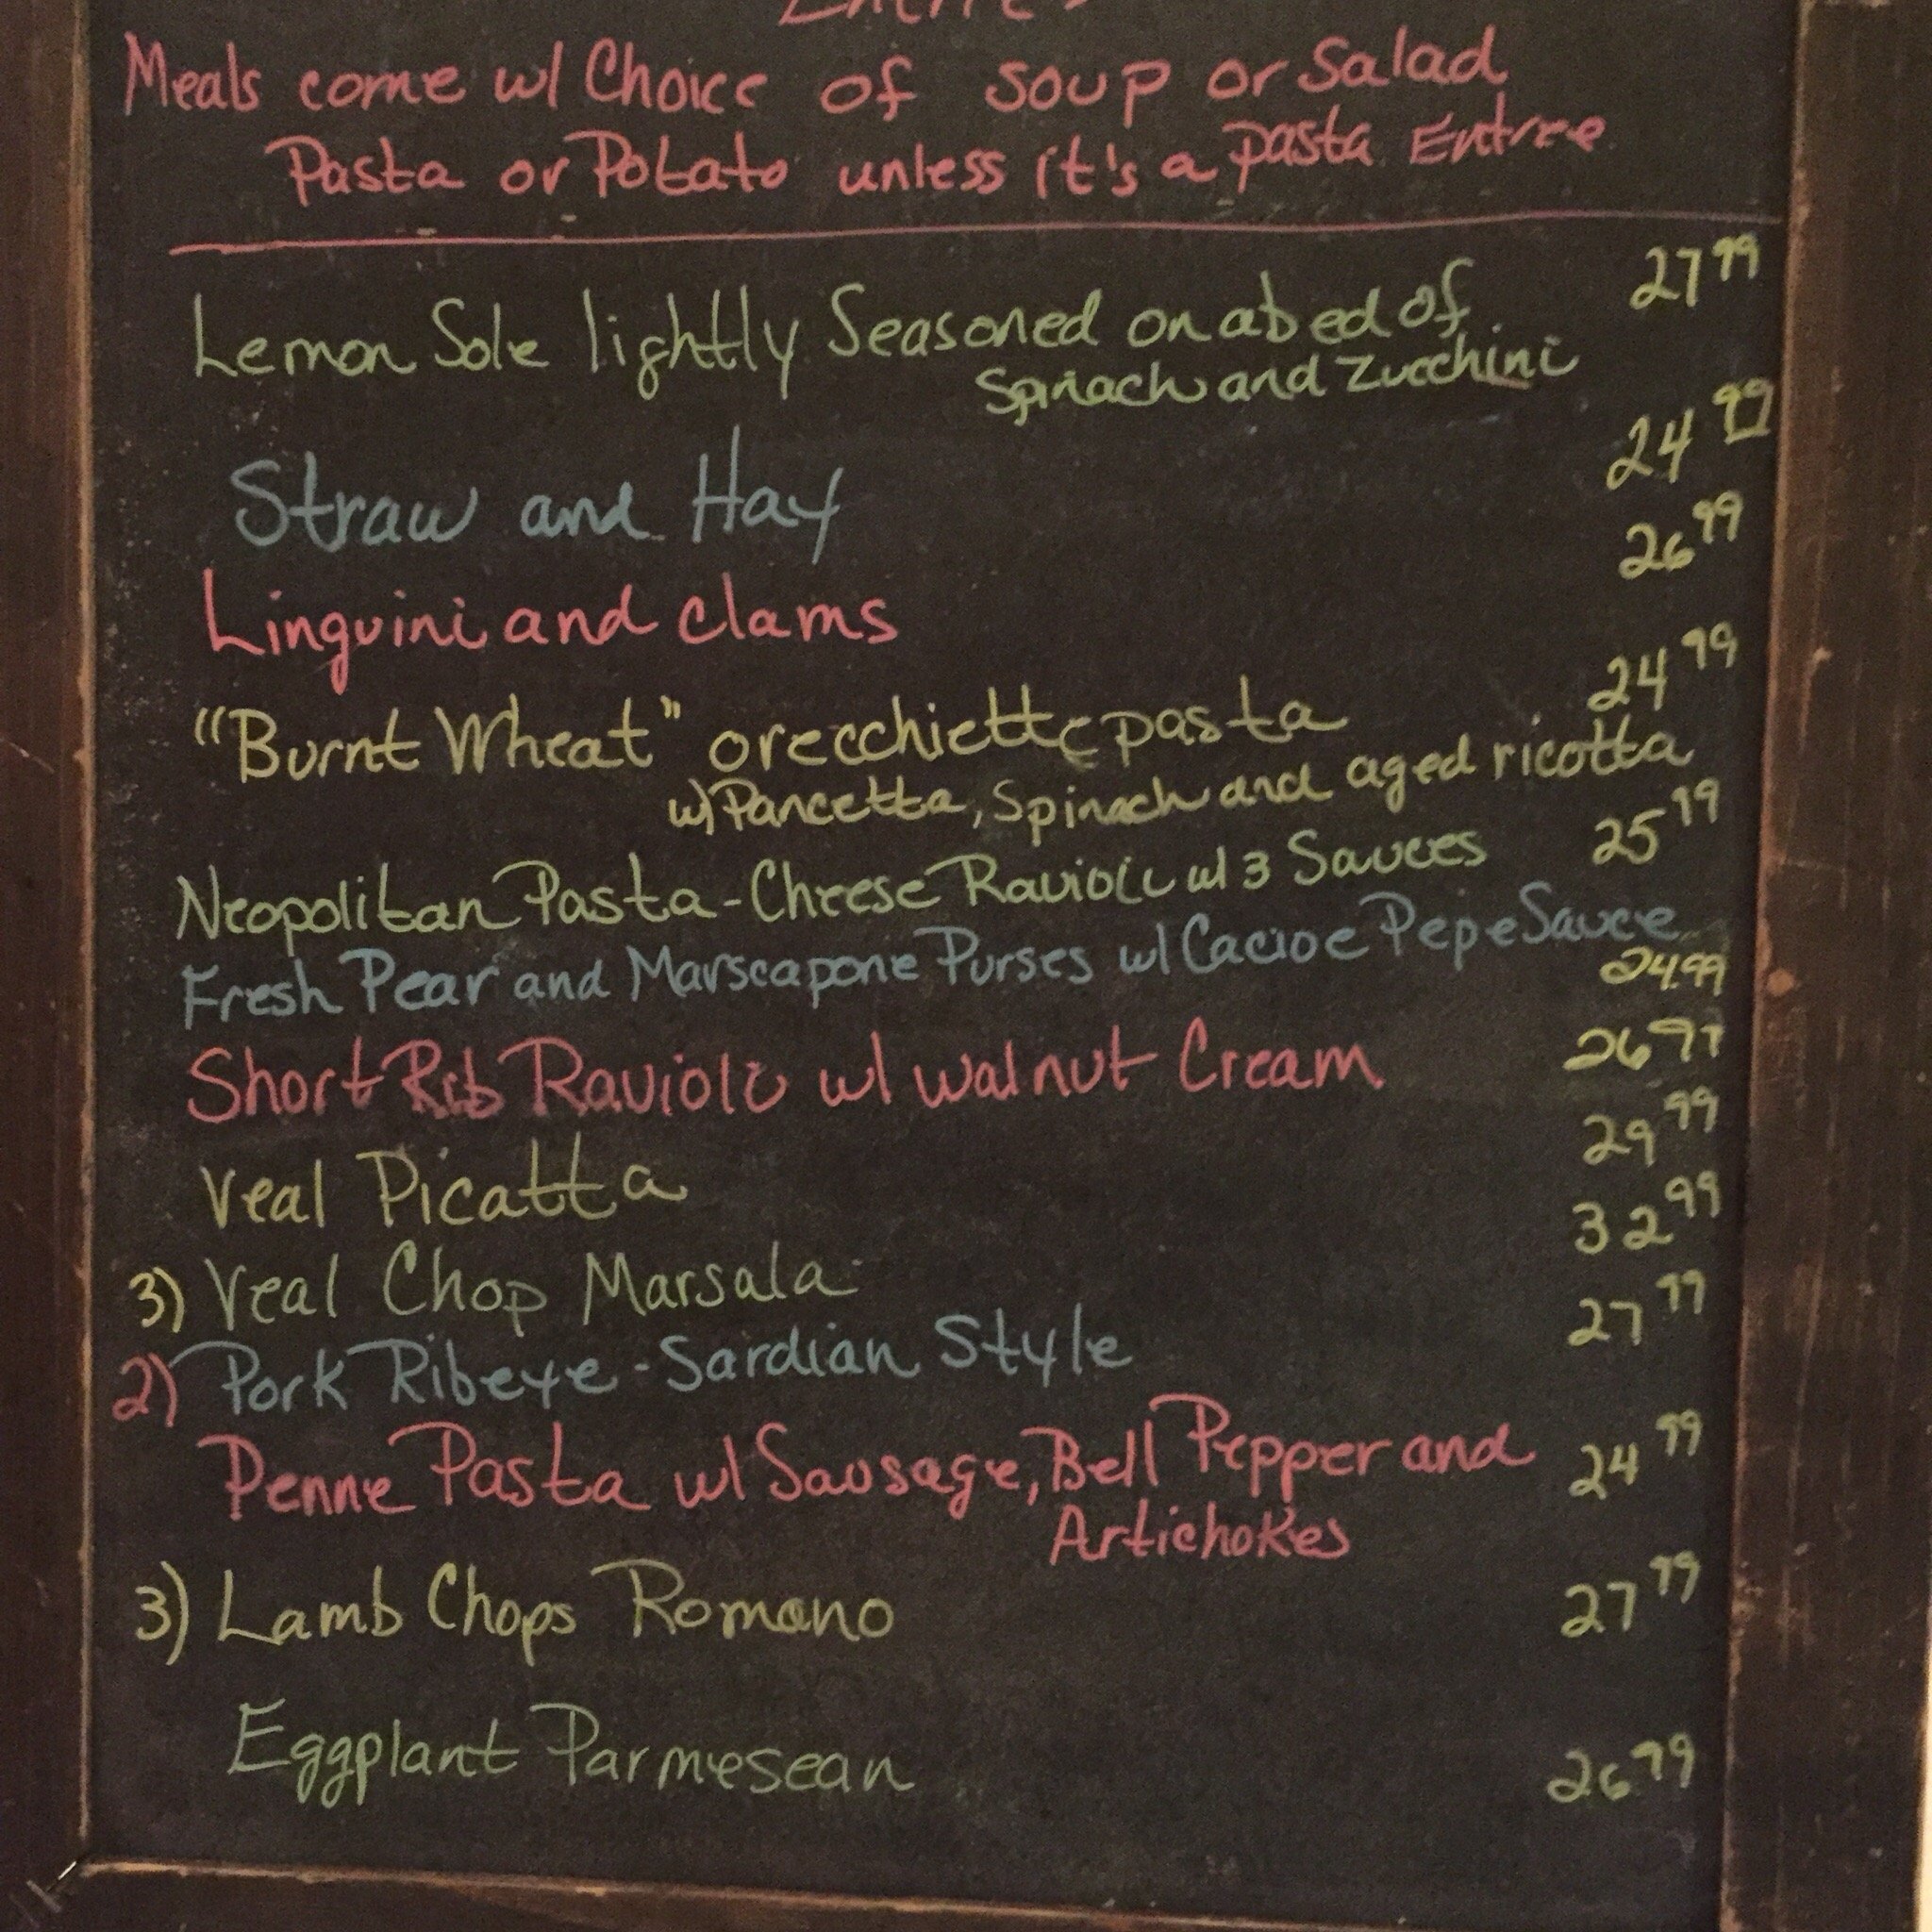 Entrée
Meals come w/ Choice of soup or Salad
Pasta or Potato unless it's a pasta Entree
Lemon Sole lightly Seasoned on a bed of 27 99
Spinach and Zucchini
Straw and Hay 24 99
Linguini and clams 26 99
"Burnt Wheat" orecchiette pasta 24 99
w/ Pancetta, Spinach and aged ricotta
Neopolitan Pasta - Cheese Ravioli w/ 3 Sauces 25 99
Fresh Pear and Marscapone Purses w/ Cacio e Pepe Sauce
24.99
Short Rib Ravioli w/ walnut Cream 26 99
Veal Picatta 29 99
3) Veal Chop Marsala 32 99
2) Pork Ribeye - Sardian Style 27 99
Penne Pasta w/ Sausage, Bell Pepper and 24 99
Artichokes
3) Lamb Chops Romano 27 99
Eggplant Parmesean 26 99